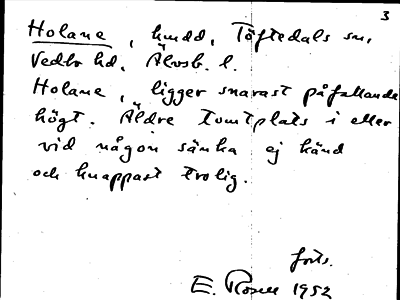 3
Holane, hmdd, Töftedals sn,
Vedbo hd. Älvsb. l.
Holane, ligger snarast påfallande
högt. Äldre tomtplats i eller
vid någon sänka ej känd
och knappast trolig.
forts.
E. Rosell 1952